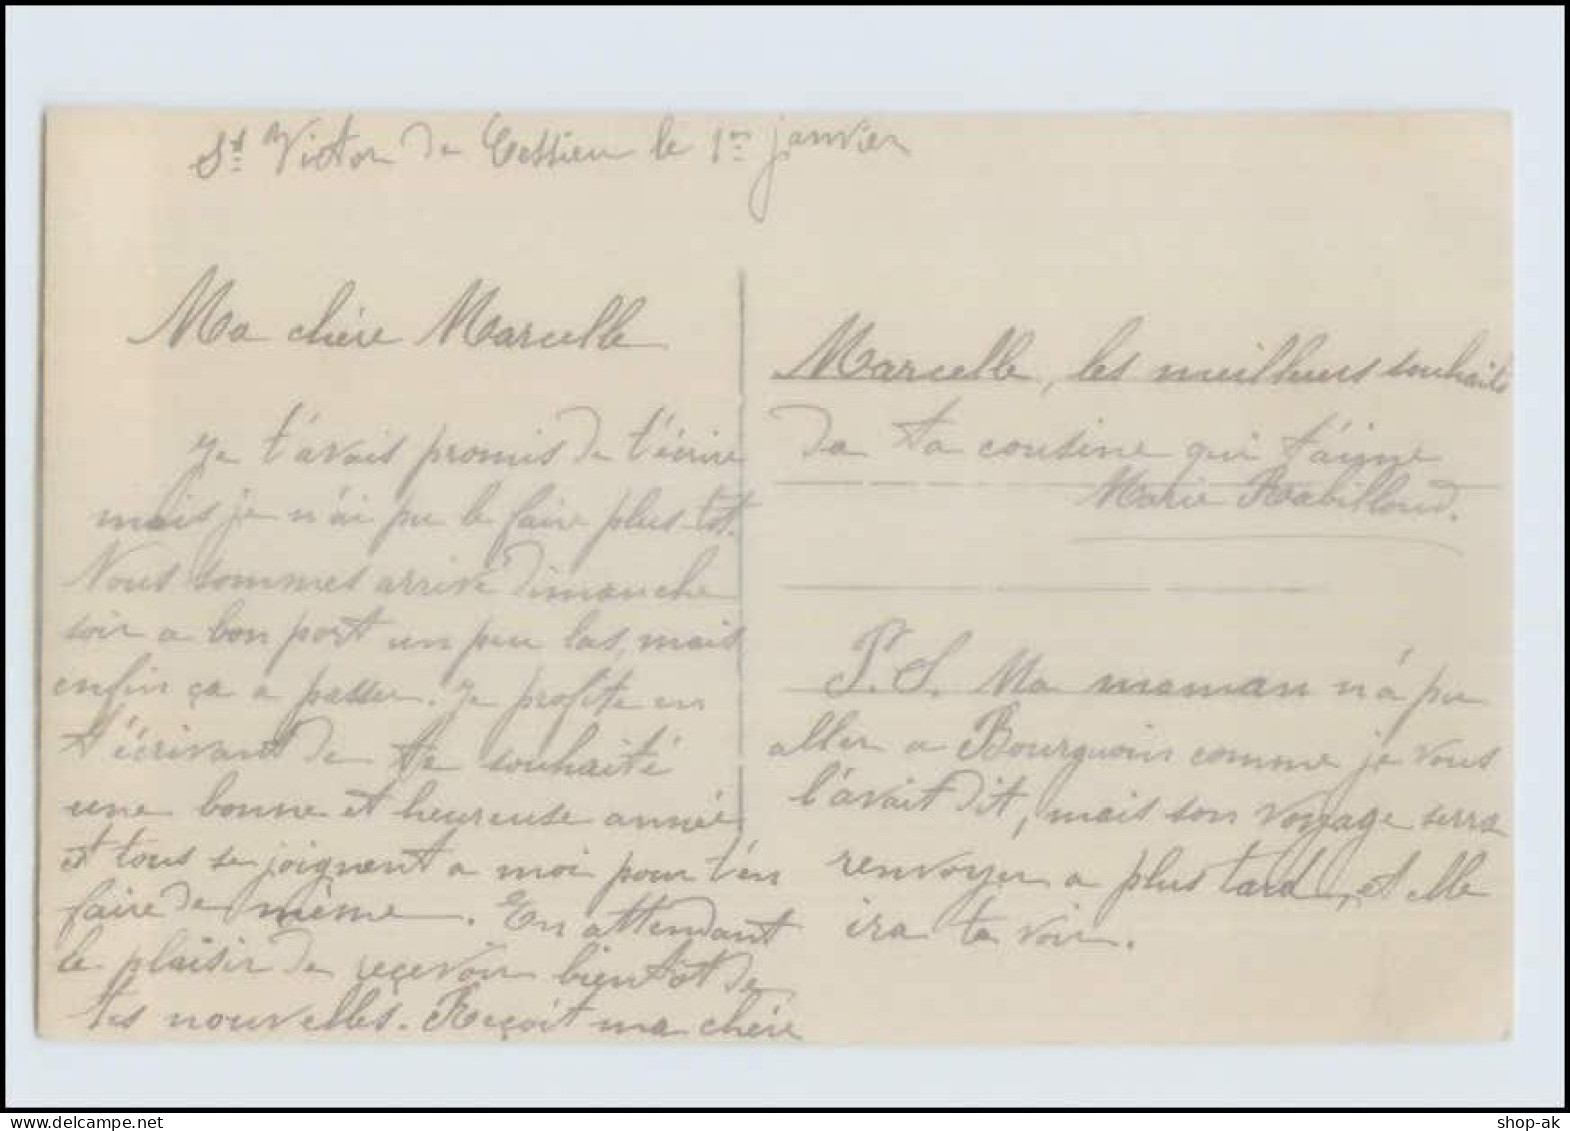 St Victor de Cessieu le 1er janvier
Ma chère Marcelle
Je t'avais promis de t'écrire
mais je n'ai pu le faire plus tot.
Nous sommes arrivé dimanche
soir a bon port un peu las, mais
enfin ça a passer. Je profite en
t'écrivant de te souhaité
une bonne et heureuse année
et tous se joignent a moi pour t'en
faire de même. En attendant
le plaisir de reçevoir bientot de
tes nouvelles. Reçoit ma chère
Marcelle, les meilleurs souhaits
de ta cousine qui t'aime
Marie Rabilloud.
P.S. Ma maman n'a pu
aller a Bourgoin comme je vous
l'avait dit, mais son voyage serra
renvoyer a plus tard, et elle
ira te voir.
shop-ak